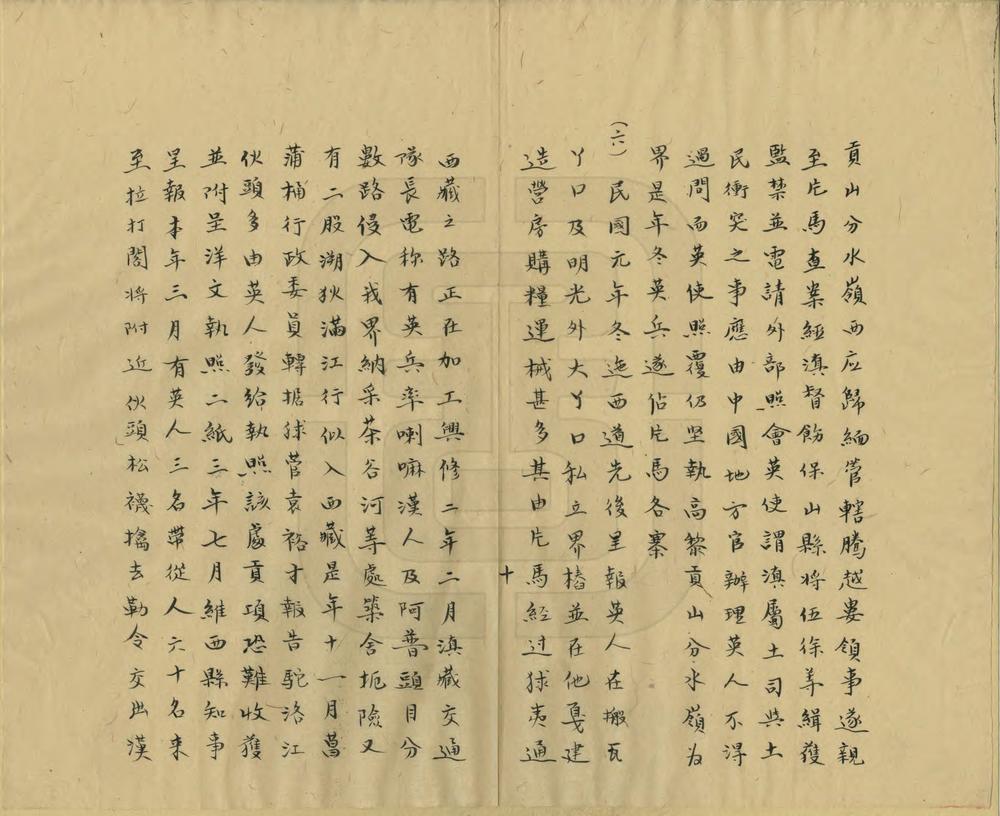 貢山分水嶺西应歸緬管轄騰越婁領事遂親
至片馬查案經滇督飭保山縣將伍徐等緝獲
監禁並電請外部照會英使謂滇屬土司與土
民衝突之事應由中國地方官辦理英人不得
過問而英使照覆仍坚執高黎貢山分水嶺为
界是年冬英兵遂佔片馬各寨
(六)民國元年冬迤西道先後呈報英人在搬瓦
丫口及明光外大丫口私立界樁並在他戛建
造營房購糧運械甚多其由片馬经过球夷通
十
西藏之路正在加工興修二年二月滇藏交通
隊長電称有英兵率喇嘛漢人及阿普頭目分
數路侵入我界納采茶谷河等處築舍扼險又
有二股溯狄滿江行似入西藏是年十一月菖
蒲桶行政委員轉据球管袁裕才報告駝洛江
伙頭多由英人發給執照該處貢項恐難收獲
並附呈洋文執照二紙三年七月維西縣知事
呈報本年三月有英人三名帶從人六十名来
至拉打閣將附近伙頭松襪擒去勒令交出漢